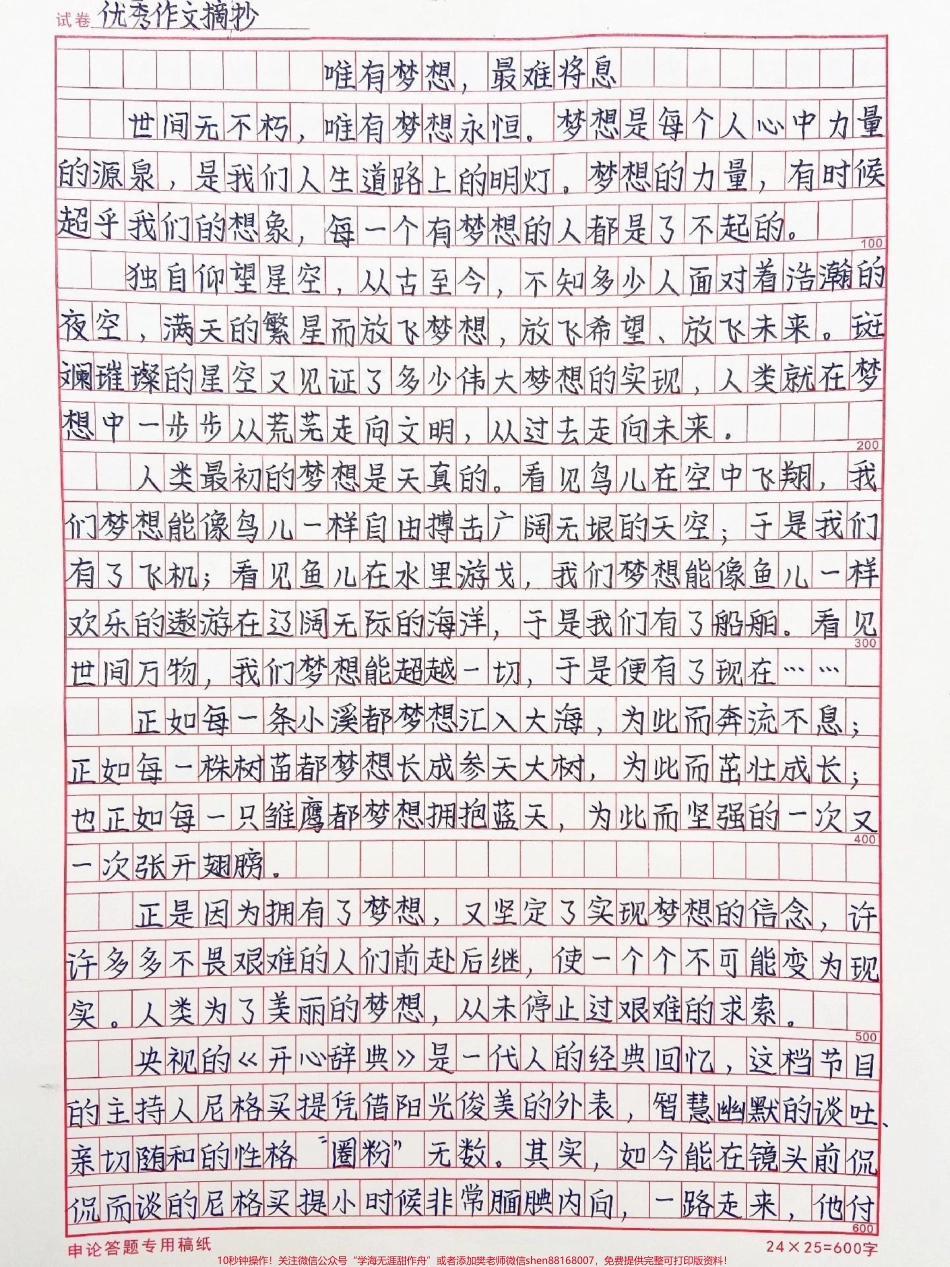 试卷 优秀作文摘抄
唯有梦想，最难将息
世间无不朽，唯有梦想永恒。梦想是每个人心中力量
的源泉，是我们人生道路上的明灯。梦想的力量，有时候
超乎我们的想象，每一个有梦想的人都是了不起的。
100
独自仰望星空，从古至今，不知多少人面对着浩瀚的
夜空，满天的繁星而放飞梦想，放飞希望、放飞未来。斑
斓璀璨的星空又见证了多少伟大梦想的实现，人类就在梦
想中一步步从荒芜走向文明，从过去走向未来。
200
人类最初的梦想是天真的。看见鸟儿在空中飞翔，我
们梦想能像鸟儿一样自由搏击广阔无垠的天空；于是我们
有了飞机；看见鱼儿在水里游戈，我们梦想能像鱼儿一样
欢乐的遨游在辽阔无际的海洋，于是我们有了船舶。看见
300
世间万物，我们梦想能超越一切，于是便有了现在……
正如每一条小溪都梦想汇入大海，为此而奔流不息；
正如每一株树苗都梦想长成参天大树，为此而茁壮成长；
也正如每一只雏鹰都梦想拥抱蓝天，为此而坚强的一次又
400
一次张开翅膀。
正是因为拥有了梦想，又坚定了实现梦想的信念，许
许多多不畏艰难的人们前赴后继，使一个个不可能变为现
实。人类为了美丽的梦想，从未停止过艰难的求索。
500
央视的《开心辞典》是一代人的经典回忆，这档节目
的主持人尼格买提凭借阳光俊美的外表，智慧幽默的谈吐、
亲切随和的性格“圈粉”无数。其实，如今能在镜头前侃
侃而谈的尼格买提小时候非常腼腆内向，一路走来，他付
600
申论答题专用稿纸 24×25=600字
10秒钟操作！关注微信公众号“学海无涯甜作舟”或者添加樊老师微信shen88168007，免费提供完整可打印版资料！